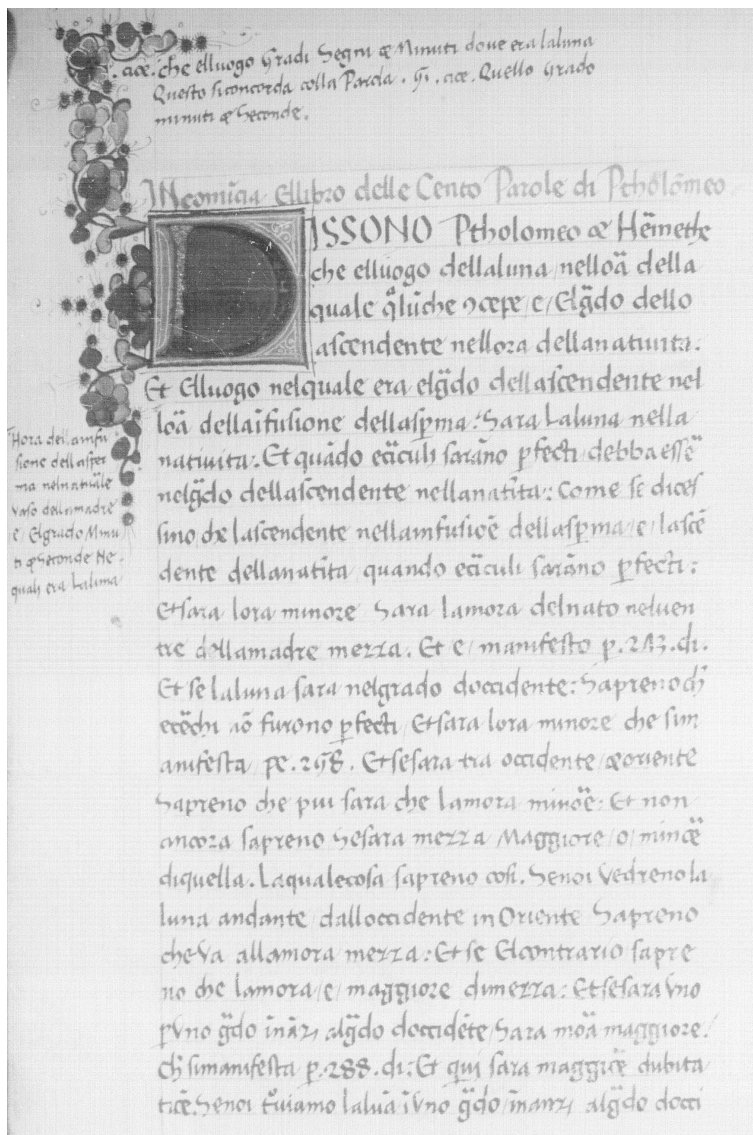 .cice. che elluogo Gradi Segni æ Minuti dove era laluna
Questo siconcorda colla Parola . cice. Quello Grado
minuti æ Seconde.
INcomicia Ellibro delle Cento Parole di Ptholomeo
DISSONO Ptholomeo æ Hēmethe
che elluogo dellaluna nelloa͞ della
quale e, Elg͞do dello
ascendente nellora dellanativita:
Et Elluogo nelquale era elg͞do dellascendente nel
loa͞ dellaīfusione dellasp͞ma: Sara Laluna nella
nativita. Et quādo sarāno p͞fecti debba essē
nelg͞do dellascendente nellanat͞ita: Come se dices
sino che lascendente nellainfusioē dellasp͞ma e, lascē
dente dellanat͞ita quando sarāno p͞fecti:
Et sara lora minore Sara lamora delnato neluen
tre dellamadre mezza. Et e, manifesto p. di.
Et se laluna sara nelgrado doccidente: Sapreno ch͞
furono p͞fecti, Et sara lora minore che sim
anifesta pe. Et sesara tra occidente æ oriente
Sapreno che piu sara che lamora minōē: Et non
ancora sapreno Sesara mezza Maggiore o, minōē
diquella. Laqualecosa sapreno cosi. Senoi Vedreno la
luna andante dalloccidente in Oriente Sapreno
che Va allamora mezza: Et se Elcontrario sapre
no che lamora e, maggiore dimezza: Et sesara Vno
p Vno g͞do īnāzi alg͞do doccidēte, Sara moa͞ maggiore.
Ch͞ simanifesta p. 288. di: Et qui sara maggiōē dubita
tiōē. Senoi t͞uiamo laluā ī Vno g͞do īnanzi alg͞do docci
Hora dellainfu
sione dellasper
ma nelnatuāle
Vaso dellamadre
e Elgrado Minu
ti æ Seconde Ne
quali era Laluna